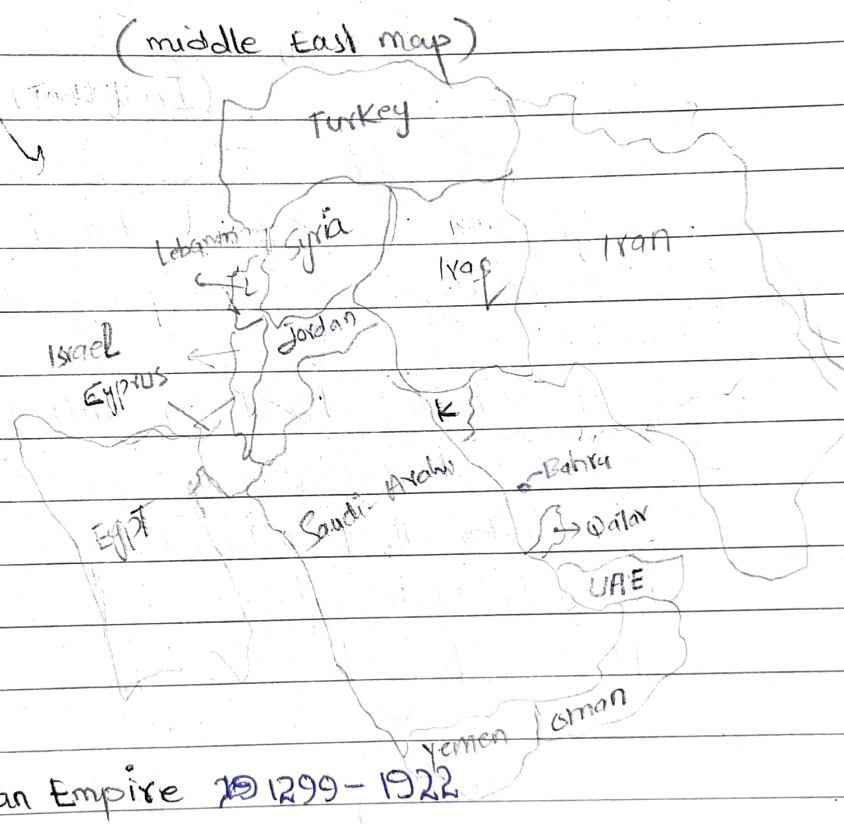 (middle East map)
Turkey
Lebanon
Syria
Iraq
Iran
L
Jordan
Israel
Eyprus
K
Bahru
Saudi-Arabi
Qatar
Egpt
UAE
Oman
Yemen
an Empire 1299-1922